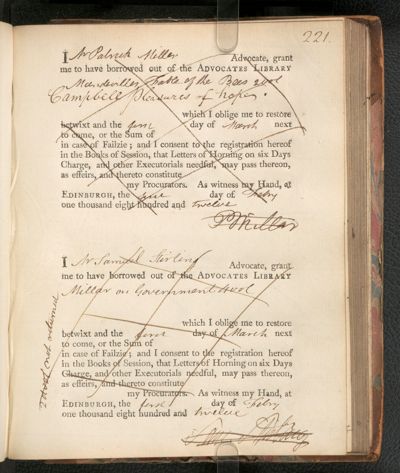 221.
I Mr Patrick Miller Advocate, grant
me to have borrowed out of the ADVOCATES LIBRARY
Mandeville's Fable of the Bees 2vol
Campbell Pleasures of hope.
which I oblige me to restore
betwixt and the first day of March next
to come, or the Sum of
in case of Failzie; and I consent to the registration hereof
in the Books of Session, that Letters of Horning on six Days
Charge, and other Executorials needful, may pass thereon,
as effeirs, and thereto constitute
my Procurators. As witness my Hand, at
EDINBURGH, the day of Febry
one thousand eight hundred and twelve
P Millar
I Mr Samuel Stirling Advocate, grant
me to have borrowed out of the ADVOCATES LIBRARY
Millar on Government 4vol
which I oblige me to restore
betwixt and the first day of March next
to come, or the Sum of
in case of Failzie; and I consent to the registration hereof
in the Books of Session, that Letters of Horning on six Days
Charge, and other Executorials needful, may pass thereon,
as effeirs, and thereto constitute
my Procurators. As witness my Hand, at
EDINBURGH, the first day of Febry
one thousand eight hundred and twelve
not returned